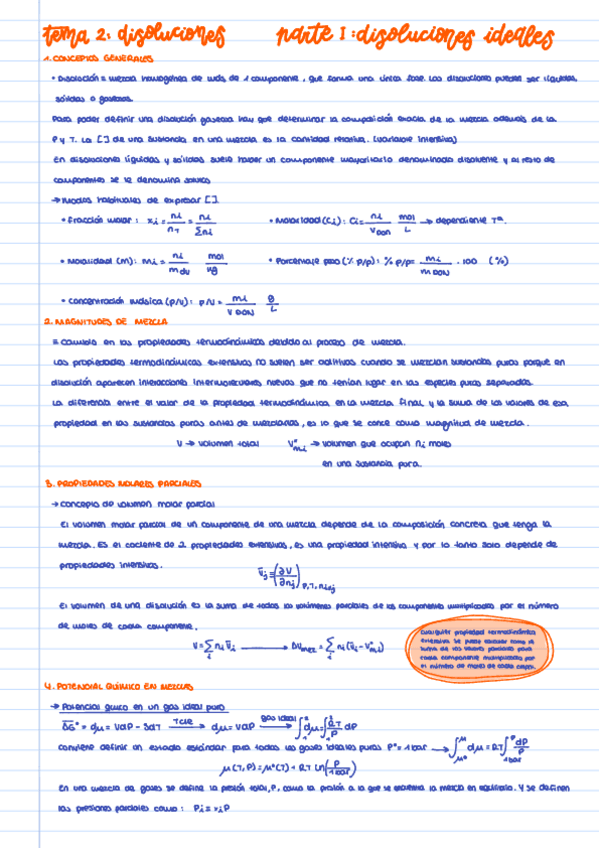 tema 2: disoluciones parte I: disoluciones ideales
1. CONCEPTOS GENERALES
• Disolución = mezcla homogénea de más de 1 componente, que forma una única fase. Las disoluciones pueden ser líquidas,
sólidas o gaseosas.
Para poder definir una disolución gaseosa hay que determinar la composición exacta de la mezcla además de la
P y T. La [ ] de una sustancia en una mezcla es la cantidad relativa. (variable intensiva)
En disoluciones líquidas y sólidas suele haber un componente mayoritario denominado disolvente y al resto de
componentes se le denomina solutos
→ Modos habituales de expresar [ ].
• Fracción molar: xi = ni/nT = ni/Σni • Molaridad (Ci): Ci = ni/VDON mol/L → dependiente Tª.
• Molalidad (m): mi = ni/mdv mol/kg • Porcentaje peso (% p/p): % p/p = mi/mDON · 100 (%)
• Concentración másica (p/v): p/v = mi/VDON g/L
2. MAGNITUDES DE MEZCLA
= Cambio en las propiedades termodinámicas debido al proceso de mezcla.
Las propiedades termodinámicas extensivas no suelen ser aditivas cuando se mezclan sustancias puras porque en
disolución aparecen interacciones intermoleculares nuevas que no tenían lugar en las especies puras separadas.
La diferencia entre el valor de la propiedad termodinámica en la mezcla final y la suma de los valores de esa
propiedad en las sustancias puras antes de mezclarlas, es lo que se conoce como magnitud de mezcla.
V → volumen total V*m,i → volumen que ocupan ni moles
en una sustancia pura.
3. PROPIEDADES MOLARES PARCIALES
→ Concepto de volumen molar parcial
El volumen molar parcial de un componente de una mezcla depende de la composición concreta que tenga la
mezcla. Es el cociente de 2 propiedades extensivas, es una propiedad intensiva y por lo tanto solo depende de
propiedades intensivas.
V̄j = (∂V/∂nj)P,T,ni≠j
El volumen de una disolución es la suma de todos los volúmenes parciales de los componentes multiplicados por el número
de moles de cada componente.
V = Σi ni V̄i → ΔVmez = Σi ni (V̄i − V*m,i)
Cualquier propiedad termodinámica
extensiva se puede calcular como la
suma de los valores parciales para
cada componente multiplicados por
el número de moles de cada especie.
4. POTENCIAL QUÍMICO EN MEZCLAS
→ Potencial químico en un gas ideal puro
dμ = VdP − SdT T cte → dμ = VdP gas ideal →
conviene definir un estado estándar para todos los gases ideales puros P° = 1 bar →
μ(T, P) = μ°(T) + RT ln(P/1 bar)
En una mezcla de gases se define la presión total, P, como la presión a la que se encuentra la mezcla en equilibrio. Y se definen
las presiones parciales como: Pi = xi P